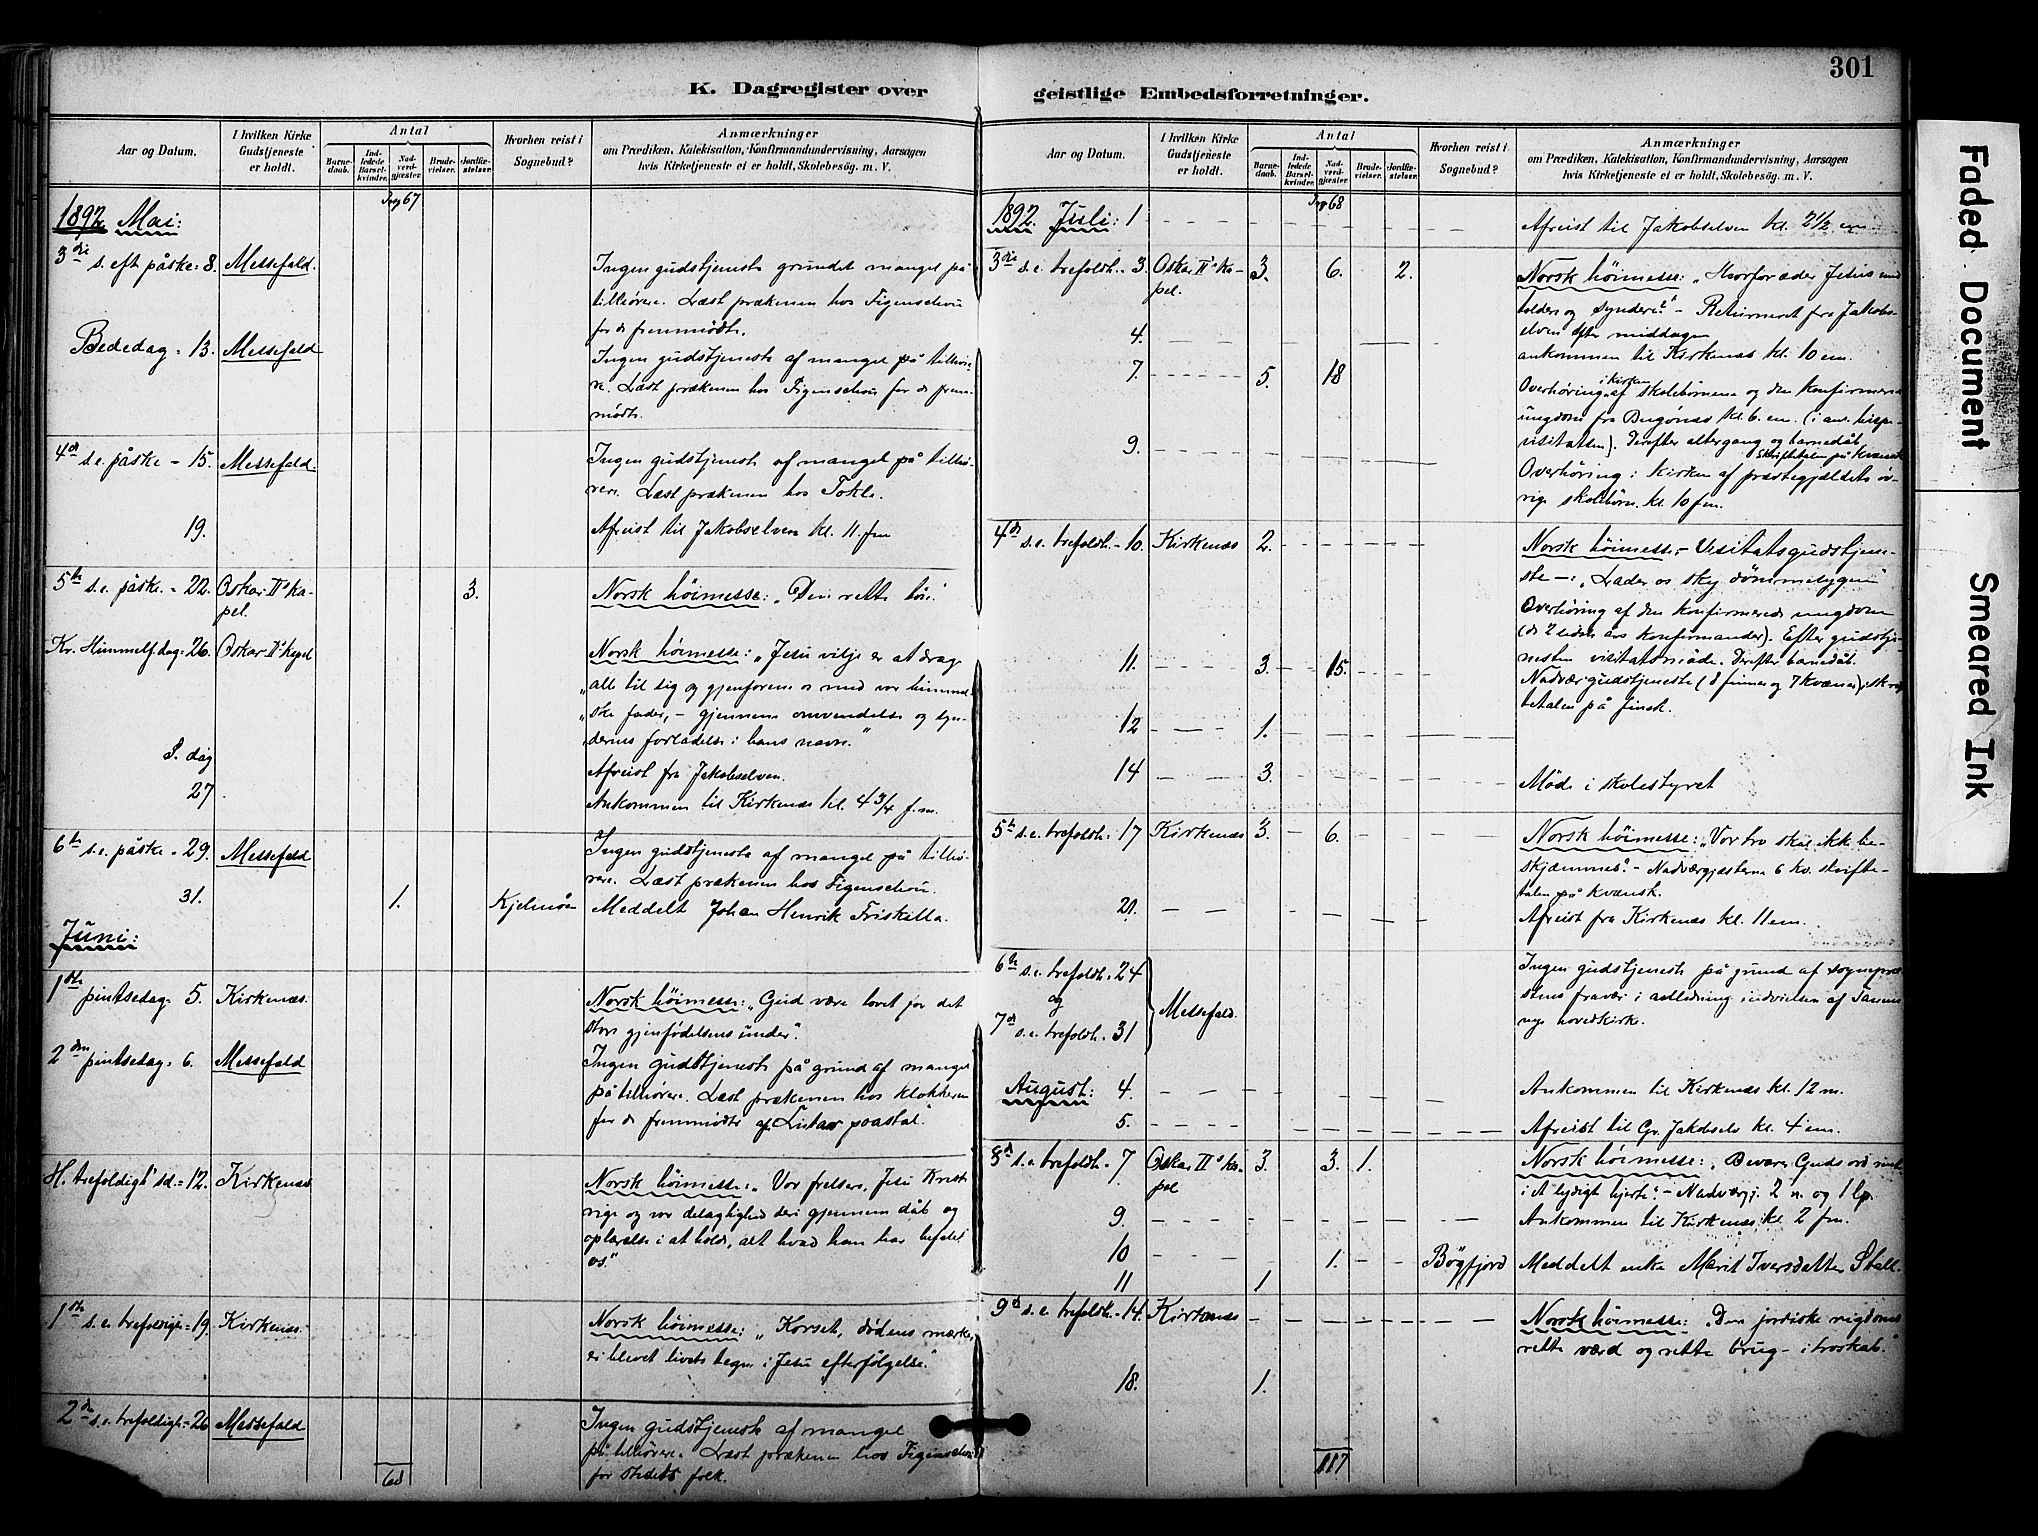 301
K. Dagregister over
geistlige Embedsforretninger.
Aar og Datum.
I hvilken Kirke
Gudstjeneste
er holdt.
Antal
Barne-
daab.
Ind-
ledede
Barsel-
kvinder.
Nad-
verd-
gjæster
Brude-
vielser.
Jordfæ-
stelser.
Hvorhen reist i
Sognebud?
Anmærkninger
om Prædiken, Katekisation, Konfirmandundervisning, Aarsagen
hvis Kirketjeneste ei er holdt, Skolebesøg. m. V.
67
1892 Mai:
3die s. eft påske = 8. Messefald.
Ingen gudstjeneste grundet mangel på
tilhörere. Læst prækenen hos Figenschou
for de fremmödte.
Bededag = 13. Messefald
Ingen gudstjeneste af mangel på tilhö-
re. Læst prækenen hos Figenschou for de frem-
mödte.
4de s.e. påske = 15. Messefald.
Ingen gudstjeneste af mangel på tilhö-
rere. Læst prækenen hos Tokle.
19.
Afreist til Jakobselven kl. 11 fm
5te s.e. påske = 22. Oskar II's ka-
pel.
3.
Norsk höimesse: "Den rette bön.
Kr. Himmelf.dag = 26. Oskar II's kapel
Norsk höimesse: "Jesu vilje er at drage
"alle til sig og gjenforene os med vor himmel-
"ske fader, - gjennem omvendelse og syn-
dernes forladelse i hans navn."
S. dag
Afreist fra Jakobselven.
27
Ankommen til Kirkenæs kl. 4 3/4 f.m.
6te s.e. påske = 29. Messefald
Ingen gudstjeneste af mangel på tilhö-
rere. Læst prækenen hos Figenschou.
31.
1.
Kjelmöen
Meddelt Johan Henrik Friskilla.
Juni:
1ste pintsedag = 5. Kirkenæs.
Norsk höimesse: "Gud være lovet for det
store gjenfödelsens under".
2den pintsedag = 6. Messefald
Ingen gudstjeneste på grund af mangel
på tilhörere. Læst prækenen hos klokkeren
for de fremmödte af "Linhav poastal."
H. trefoldigh sd. = 12. Kirkenæs
Norsk höimesse: "Vor frelsers Jesu Krist
rige og vor delagtighed deri gjennem dåb og
oplærelse i at holde, alt hvad han har befalet
os."
1ste s.e. trefoldigh = 19. Kirkenæs.
Norsk höimesse: "Korset, dödens mærke,
er blevet livets tegn i Jesu efterfölgelse."
2den s.e. trefoldigh = 26 Messefald
Ingen gudstjeneste af mangel
på tilhörere. Læst prækenen hos Figenschou
for stedets folk.
68
Aar og Datum.
I hvilken Kirke
Gudstjeneste
er holdt.
Antal
Barne-
daab.
Ind-
ledede
Barsel-
kvinder.
Nad-
verd-
gjæster
Brude-
vielser.
Jordfæ-
stelser.
Hvorhen reist i
Sognebud?
Anmærkninger
om Prædiken, Katekisation, Konfirmandundervisning, Aarsagen
hvis Kirketjeneste ei er holdt, Skolebesøg. m. V.
68
1892. Juli: 1
Afreist til Jakobselven kl. 2 1/2 em
3die s.e. trefoldh. = 3. Oskar II's ka-
pel.
3. 6. 2.
Norsk höimesse: "Hvorfor æder Jesus med
toldere og syndere?" - Returneret fra Jakobs-
elven efter middagen
4.
ankommen til Kirkenæs kl. 10 em.
7.
5. 18
Overhöring i kirken af skolebörnene og den konfirmerede
ungdom fra Bugönæs kl. 6. em. (i anl. bispe-
visitatsen). Derefter altergang og barnedåb.
Skriftetalen på kvænsk
9.
Overhöring i kirken af præstegjældets öv-
rige skolebörn kl. 10 fm.
4de s.e. trefoldh. = 10. Kirkenæs 2.
Norsk höimesse = Visitatsgudstjene-
ste - : "Lader os sky dömmesygen"
Overhöring af den konfirmerede ungdom
(de 2 sidste års konfirmander). Efter gudstje-
nesten visitatsmöde. Derefter barnedåb.
11.
3. 15.
Nadværgudstjeneste (8 finner og 7 kvæner), skrif-
tetalen på finsk.
12
1.
14
3.
Möde i skolestyret
5te s.e. trefoldh. = 17 Kirkenæs 3. 6.
Norsk höimesse: "Vor tro skal ikke be-
skjæmmes". - Nadværgjæsterne 6 kv. skrifte-
talen på kvænsk.
21.
Afreist fra Kirkenæs kl. 11 em.
6te s.e. trefoldh. = 24
og
7de s.e. trefoldh. = 31
Messefald.
Ingen gudstjeneste på grund af sognepræ-
stens fravær i anledning indvielsen af Tanens
nye hovedkirke.
August: 4.
Ankommen til Kirkenæs kl. 12 m.
5.
Afreist til Gr. Jakobselv kl. 4 em.
8de s.e. trefoldh. = 7 Oskar II's ka-
pel
3. 3. 1.
Norsk höimesse: "Bevare Guds ord ret
i et lydigt hjerte". - Nadværgj. 2 n. og 1 lp.
9.
Ankommen til Kirkenæs kl. 2 fm.
10
1.
Bögfjord
Meddelt enke Marit Iversdatter Stall.
11
1
9de s.e. trefoldh. = 14. Kirkenæs
Norsk höimesse: "Den jordiske rigdoms
rette værd og rette brug - i troskab."
18.
1.
117
Faded Document
Smeared Ink